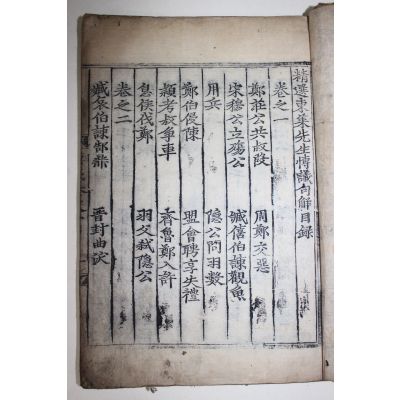 精選東萊先生博議句解目錄
卷之一
鄭莊公共叔段 周鄭交惡
宋穆公立殤公 臧僖伯諫觀魚
用兵 隱公問羽數
鄭伯侵陳 盟會聘享失禮
潁考叔爭車 齊魯鄭入許
息侯伐鄭 羽父弑隱公
卷之二
臧哀伯諫郜鼎 晉封曲沃